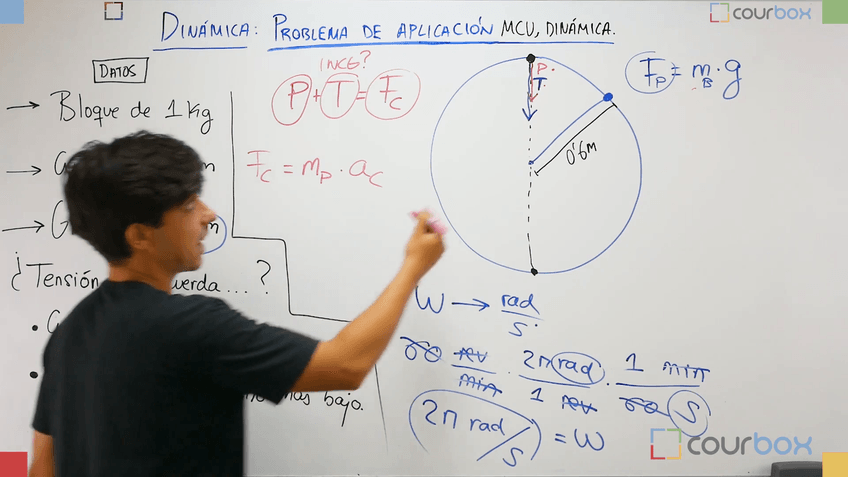 DINÁMICA: PROBLEMA DE APLICACIÓN MCU, DINÁMICA.
courbox
DATOS
→ Bloque de 1 Kg
¿Tensión cuerda...?
más bajo.
INCG?
P + T = Fc
Fc = mp · ac
P.
T.
0'6m
Fp = mB · g
W → rad/s.
60 rev/min · 2π rad/1 rev · 1 min/60 s
2π rad/s = W
courbox